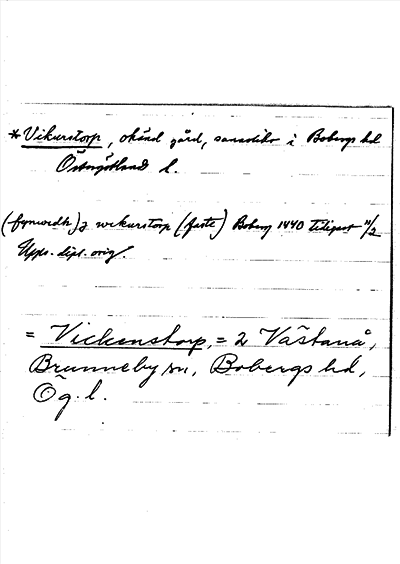 *Vikurstorp, okänd gård, sannolikt i Bobergs hd
Östergötland l.
(fynwidh) j wikurstorp (faste) Boberg 1440 11/2
Upps. dipl. orig.
= Vickenstorp, = 2 Västanå,
Brunneby sn, Bobergs hd,
Ög. l.